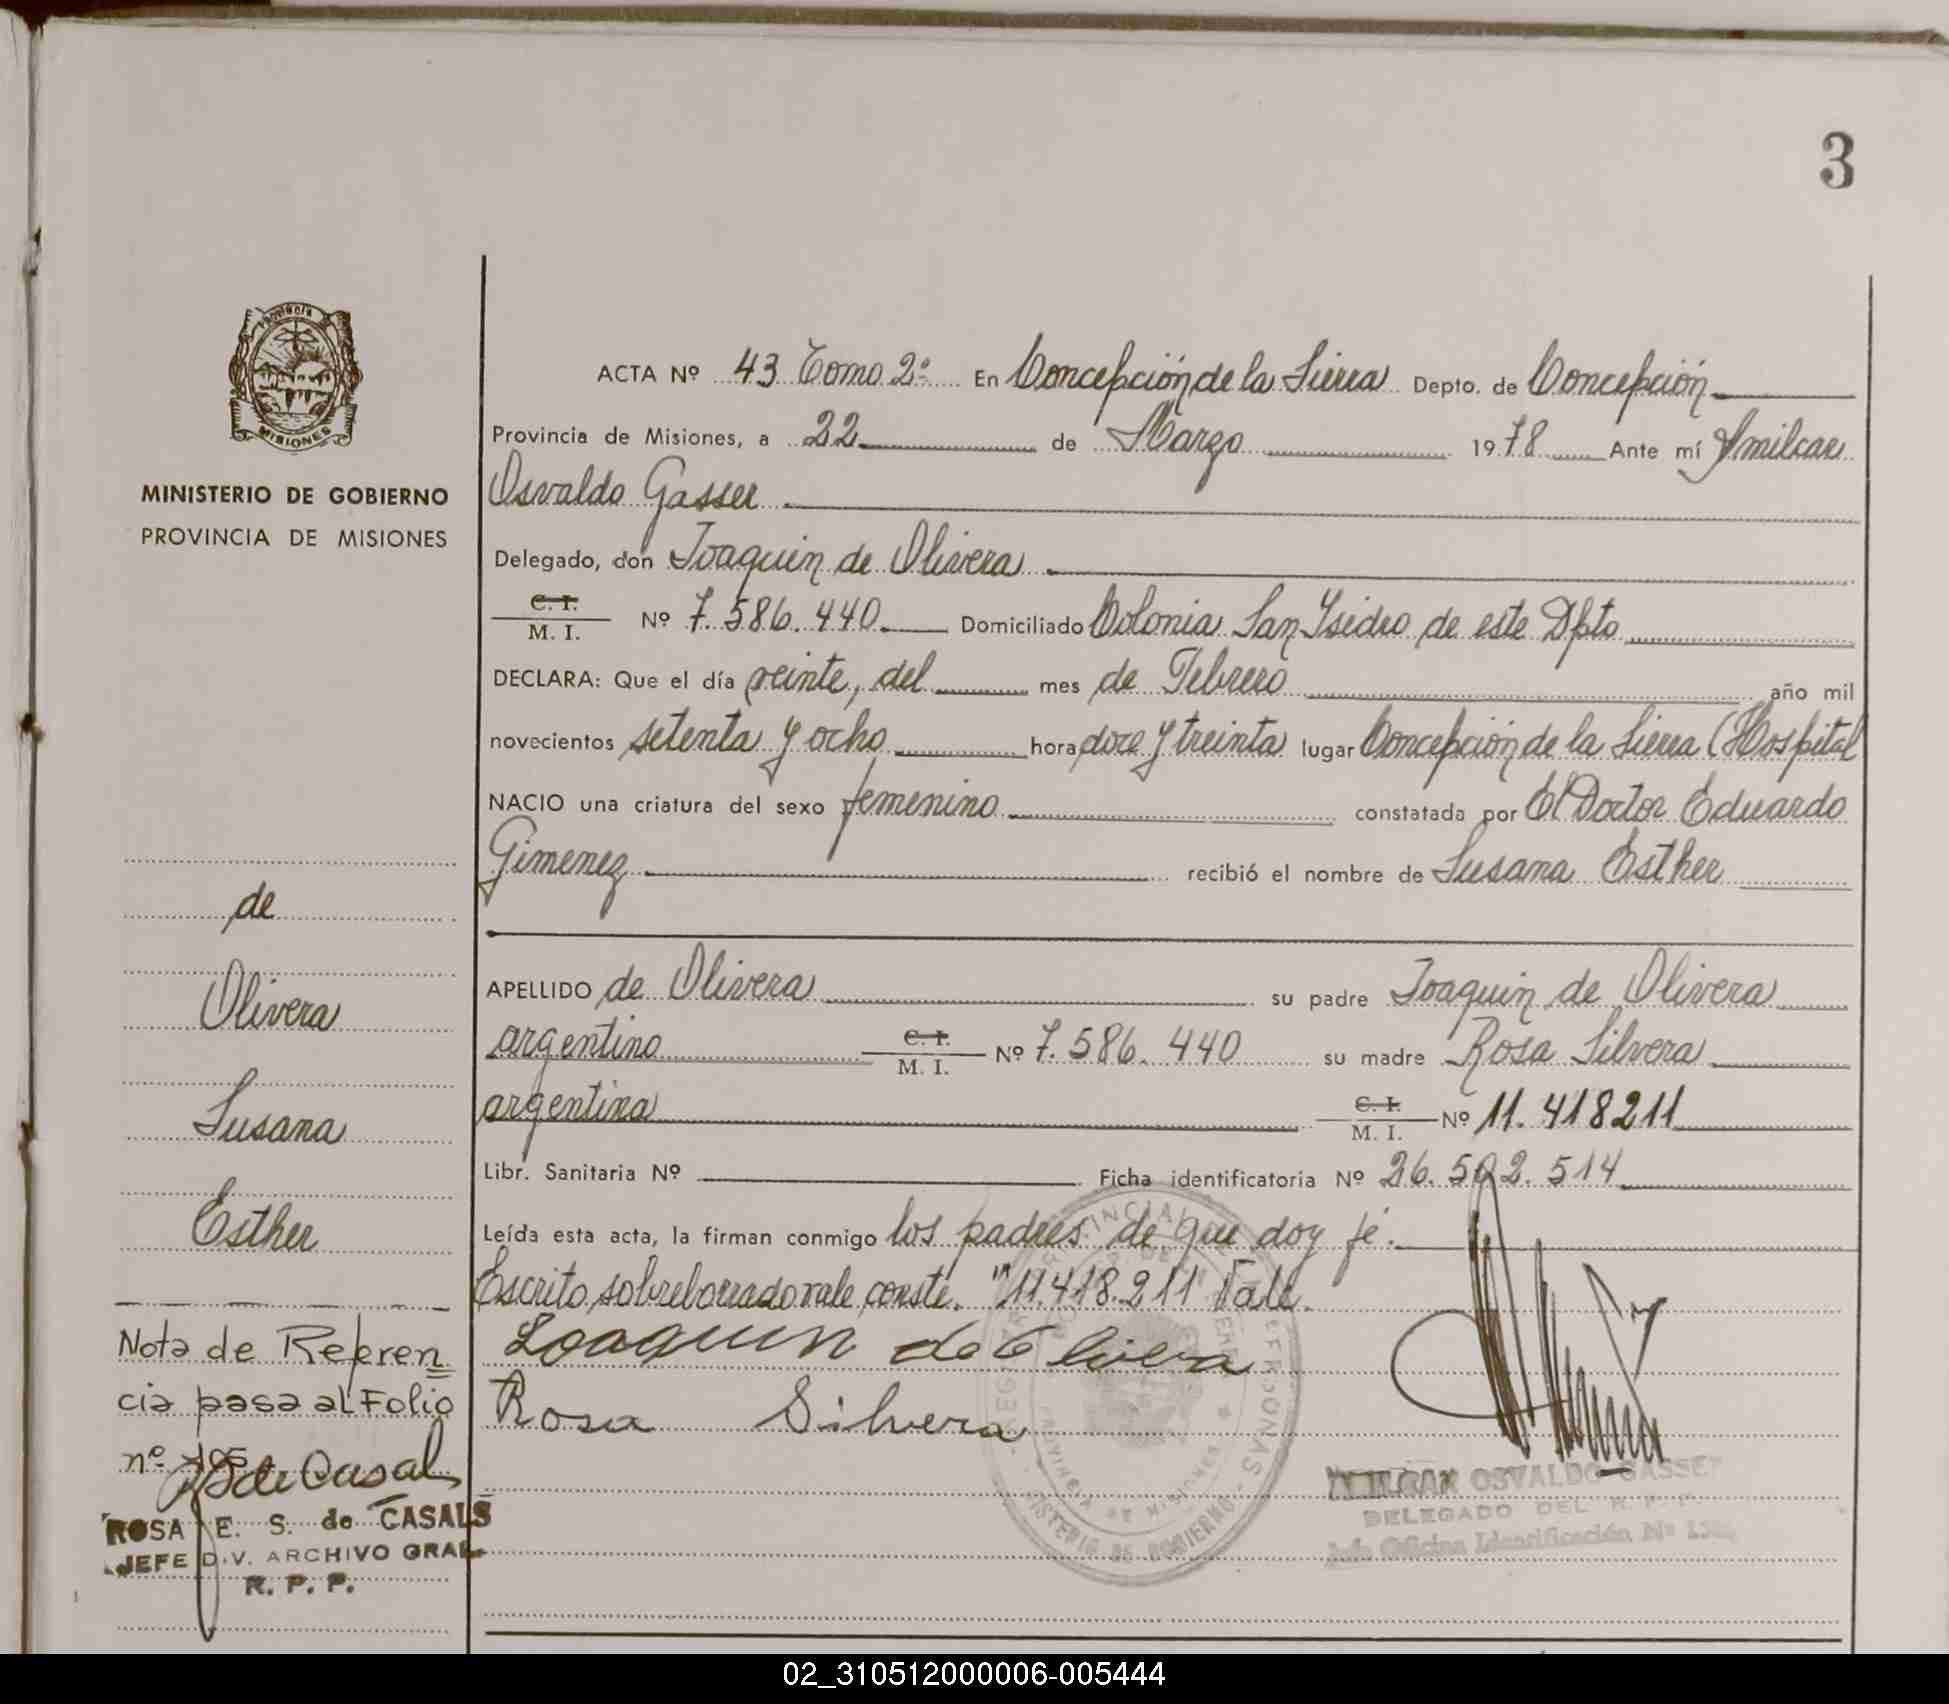 3
PROVINCIA
MISIONES
MINISTERIO DE GOBIERNO
PROVINCIA DE MISIONES
de
Olivera
Susana
Esther
Nota de Referen
cia pasa al Folio
nº 105
R S de Casals
ROSA E. S. de CASALS
JEFE DIV. ARCHIVO GRAL.
R. P. P.
ACTA Nº 43 Tomo 2º En Concepción de la Sierra Depto. de Concepción
Provincia de Misiones, a 22 de Marzo 1978 Ante mí Amilcar
Osvaldo Gasser
Delegado, don Joaquin de Olivera
C. I.
M. I. Nº 7.586.440 Domiciliado Colonia San Ysidro de este Dpto
DECLARA: Que el día veinte, del mes de Febrero año mil
novecientos setenta y ocho hora doce y treinta lugar Concepción de la Sierra (Hospital
NACIO una criatura del sexo femenino constatada por El Doctor Eduardo
Gimenez recibió el nombre de Susana Esther
APELLIDO de Olivera su padre Joaquin de Olivera
argentino C. I. M. I. Nº 7.586.440 su madre Rosa Silvera
argentina C. I. M. I. Nº 11.418211
Libr. Sanitaria Nº Ficha identificatoria Nº 26.502.514
Leída esta acta, la firman conmigo los padres de que doy fé.
Escrito sobreborrado vale conste. "11.418.211" Vale.
Joaquin de Olivera
Rosa Silvera
AMILCAR OSVALDO GASSER
DELEGADO DEL R. P. P.
Jefe Oficina Identificación Nº
PROVINCIA DE MISIONES
MINISTERIO DE GOBIERNO
02_310512000006-005444